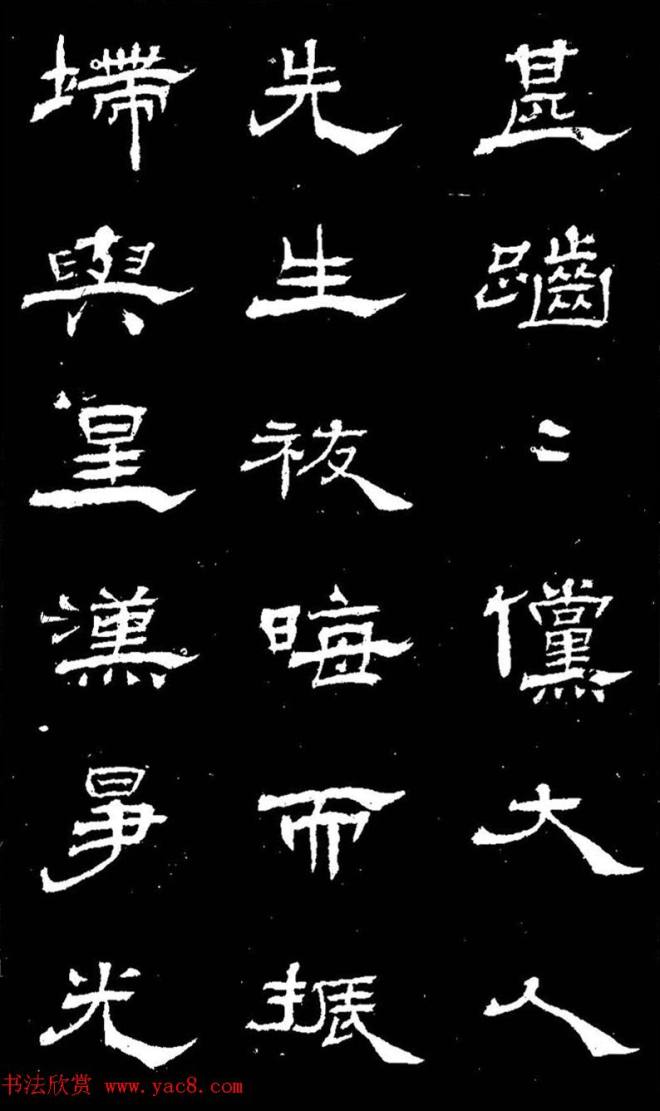 甚齱〻儻大人
先生袚晦而振
墆與星漢爭光
书法欣赏 www.yac8.com